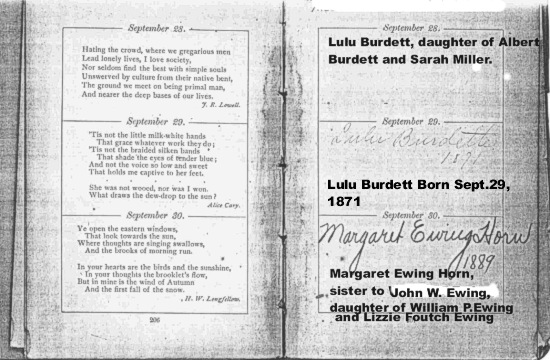 September 28.
Hating the crowd, where we gregarious men
Lead lonely lives, I love society,
Nor seldom find the best with simple souls
Unswerved by culture from their native bent,
The ground we meet on being primal man,
And nearer the deep bases of our lives.
J. R. Lowell.
September 29.
'Tis not the little milk-white hands
That grace whatever work they do;
'Tis not the braided silken bands
That shade the eyes of tender blue;
And not the voice so low and sweet
That holds me captive to her feet.
She was not wooed, nor was I won.
What draws the dew-drop to the sun?
Alice Cary.
September 30.
Ye open the eastern windows,
That look towards the sun,
Where thoughts are singing swallows,
And the brooks of morning run.
In your hearts are the birds and the sunshine,
In your thoughts the brooklet's flow,
But in mine is the wind of Autumn
And the first fall of the snow.
H. W. Longfellow.
206
September 28.
Lulu Burdett, daughter of Albert
Burdett and Sarah Miller.
September 29.
Lulu Burdette
Lulu Burdett Born Sept.29,
1871
September 30.
Margaret Ewing Horn
1889
Margaret Ewing Horn,
sister to John W. Ewing,
daughter of William P.Ewing
and Lizzie Foutch Ewing